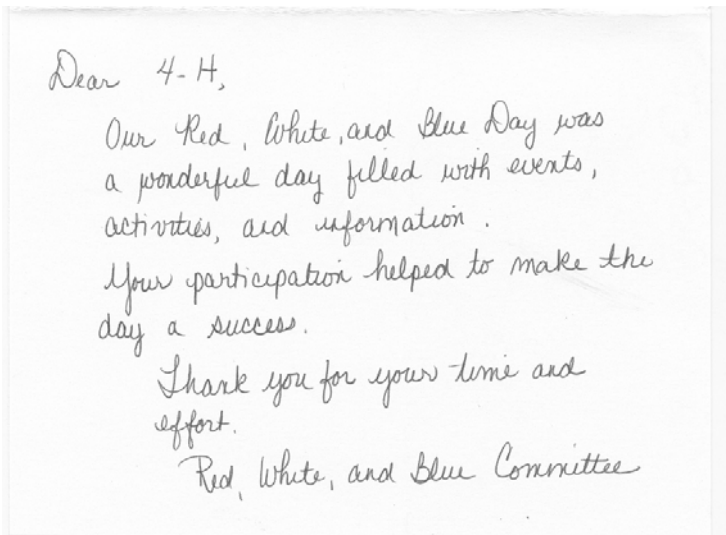 Dear 4-H,
Our Red, White, and Blue Day was
a wonderful day filled with events,
activities, and information.
Your participation helped to make the
day a success.
Thank you for your time and
effort.
Red, White, and Blue Committee